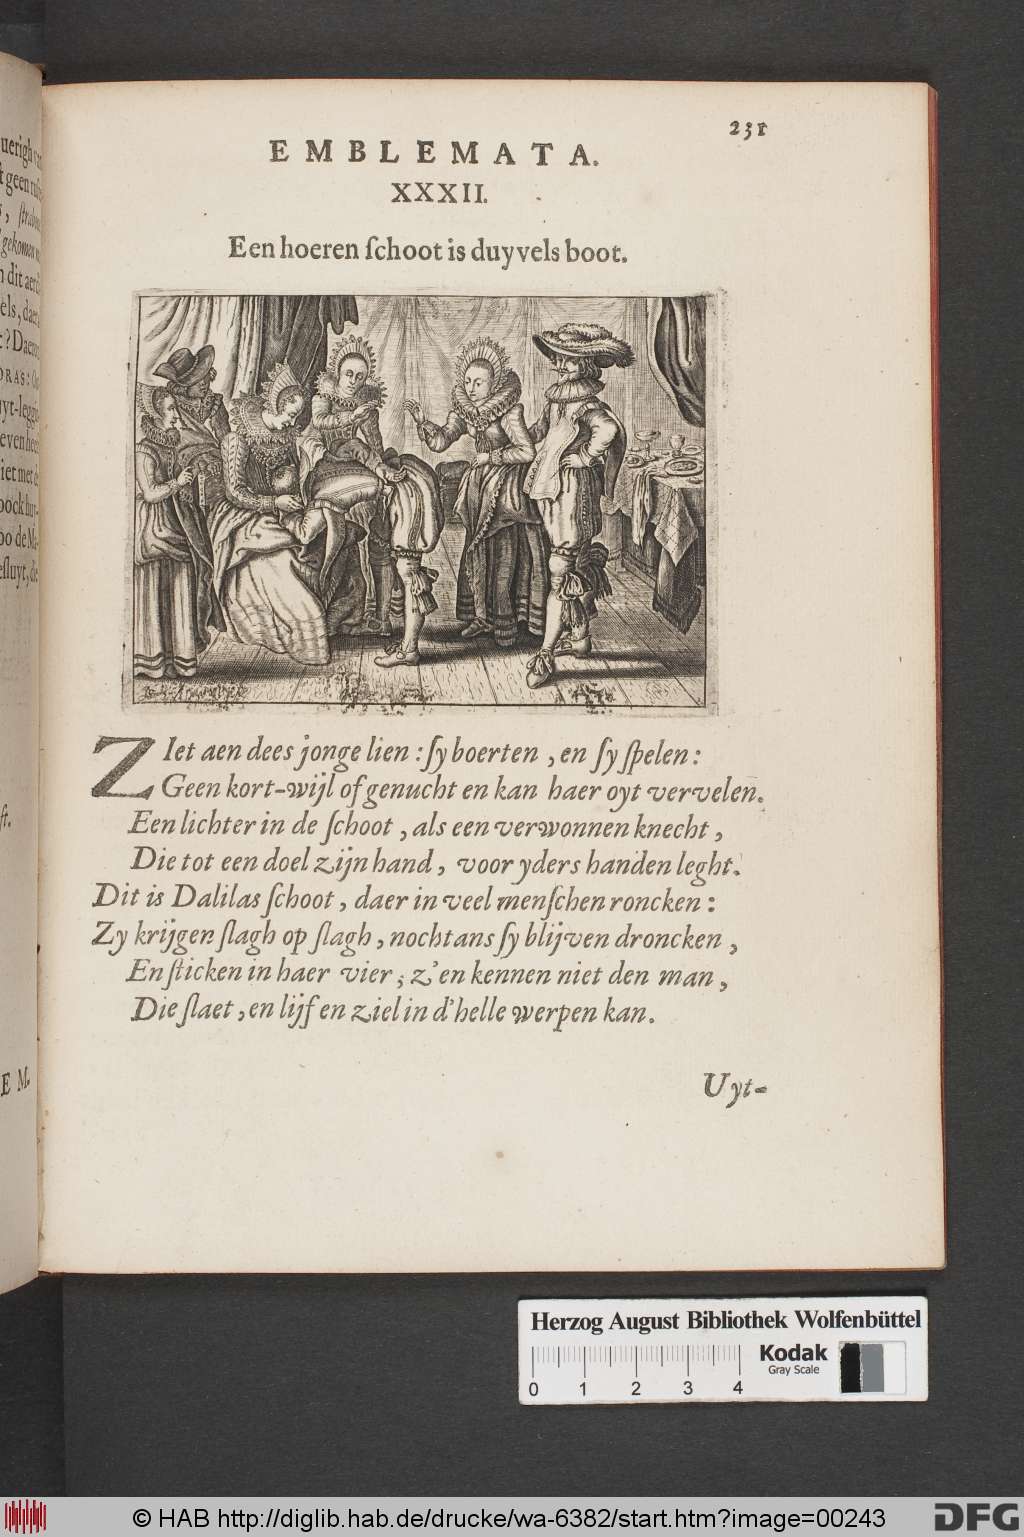 231
EMBLEMATA.
XXXII.
Een hoeren ſchoot is duyvels boot.
ZIet aen dees jonge lien : ſy boerten , en ſy ſpelen :
Geen kort-wijl of genucht en kan haer oyt vervelen.
Een lichter in de ſchoot , als een verwonnen knecht ,
Die tot een doel zijn hand , voor yders handen leght.
Dit is Dalilas ſchoot , daer in veel menſchen roncken :
Zy krijgen ſlagh op ſlagh , nochtans ſy blijven droncken ,
En ſticken in haer vier ; z'en kennen niet den man ,
Die ſlaet , en lijf en ziel in d'helle werpen kan.
Uyt-
Herzog August Bibliothek Wolfenbüttel
Kodak
Gray Scale
0 1 2 3 4
© HAB http://diglib.hab.de/drucke/wa-6382/start.htm?image=00243
DFG